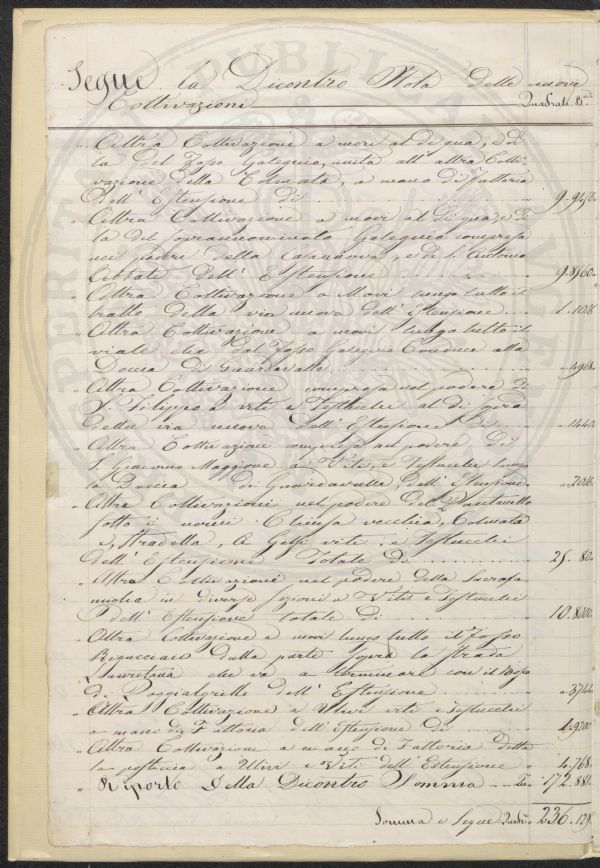 Segue la Dicontro Nota delle nuove
Coltivazioni Quadrati Bre
" Altra Coltivazione a mori al di qua, e di
la del Fosso Galegno, unita all'altra Colti-
vazione della Colmata, a mano di Fattoria
Dell'Estensione di 9.
Altra Coltivazione a mori al di qua e di
la del soprannominato Galegno compresa
nei poderi della Casanova, e di S. Antonio
Abbate Dell'Estensione 9.8560
" Altra Coltivazione a Mori lungo tutto il
tratto della via nuova dell'Estensione 1.
Altra Coltivazione a mori lungo tutto il
viale che dal Fosso Galegno Conduce alla
Doccia di Guardavalle 4968
" Altra Coltivazione compresa nel podere di
S. Filippo a viti e Testucchi al di qua
della via nuova Dell'Estensione di 1440
" Altra Coltivazione compresa nel podere di
S. Giacomo Maggiore a Viti, e Testucchi lungo
la Doccia di Guardavalle Dell'Estensione
" Altre Coltivazioni nel podere del Pantanello
sotto i nomi Chiusa vecchia, Colmata
e Stradella, a Gelsi viti e Testucchi
Dell'Estensione Totale di 25. 80
" Altra Coltivazione nel podere della Sacrafa
miglia in diverse sezioni a Viti e Testucchi
dell'Estensione totale di 10.8000
Altra Coltivazione a mori lungo tutto il Fosso
dalla parte sopra la strada
Lauretana che va a terminare con il
di Poggialgrille dell'Estensione 3744
" Altra Coltivazione a Ulivi viti e Testucchi
a mano di Fattoria dell'Estensione di 1.9200
" Altra Coltivazione a mano di Fattoria detta
la a Ulivi e Viti dell'Estensione 4.768
" Riporto Della Dicontro Somma 172.881
Somma e Segue Quadri 236.129